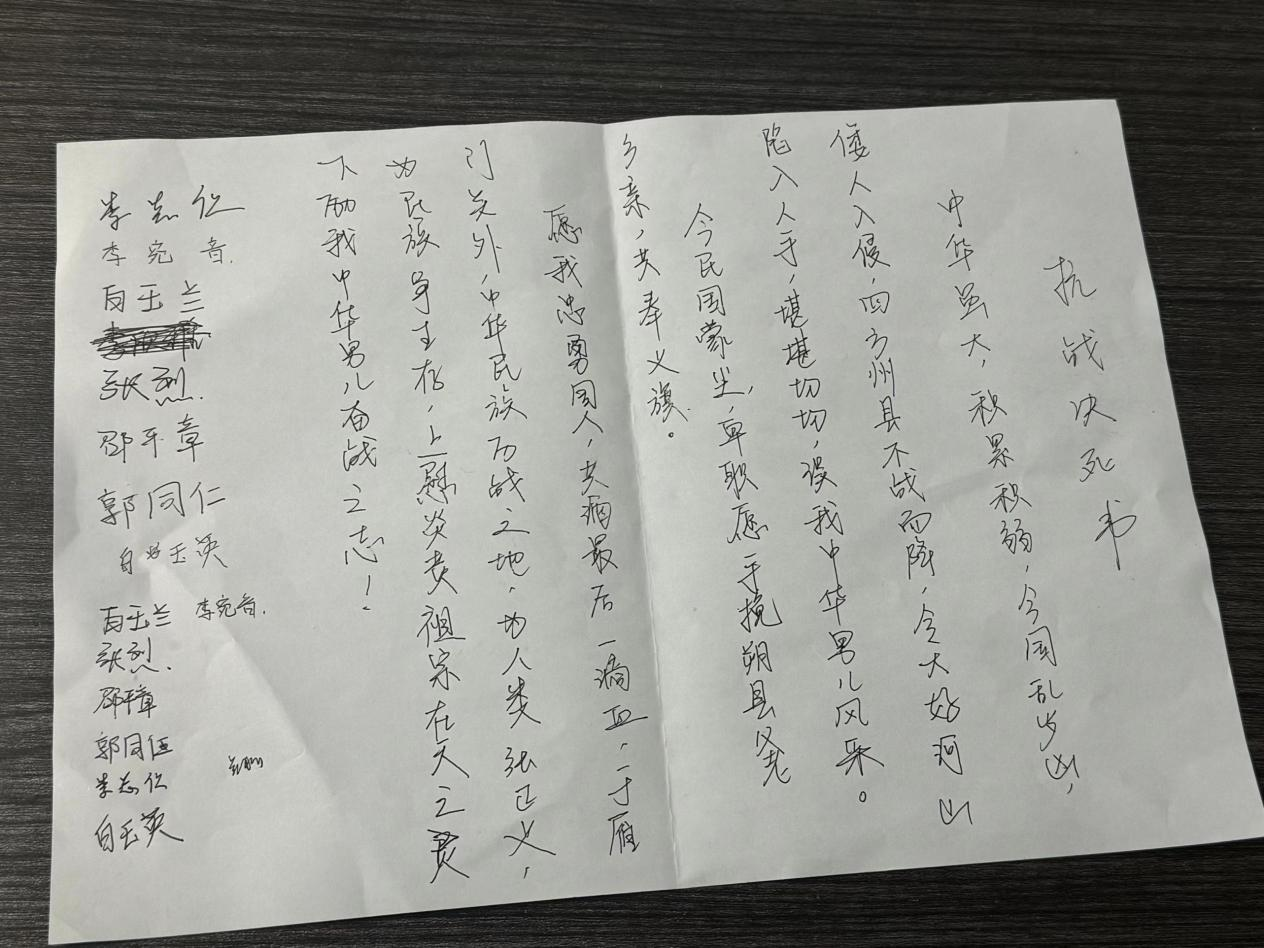 抗战决死书
中华虽大，积累积弱，今国乱岁凶，
倭人入侵，四方州县不战而降，令大好河山
陷入人手，堪堪切切，没我中华男儿风采。
今民国蒙尘，卑职愿手挽朔县父老
乡亲，共奉义旗。
愿我忠勇国人，共洒最后一滴血，于雁
门关外，中华民族历战之地，为人类张正义，
为民族争生存，上慰炎黄祖宗在天之灵
下励我中华男儿奋战之志！
李志仁
李宛音.
白玉兰
张烈.
邵平章
郭同仁
白玉英
白玉兰 李宛音.
张烈.
邵平章
郭同伍
李志仁
白玉英